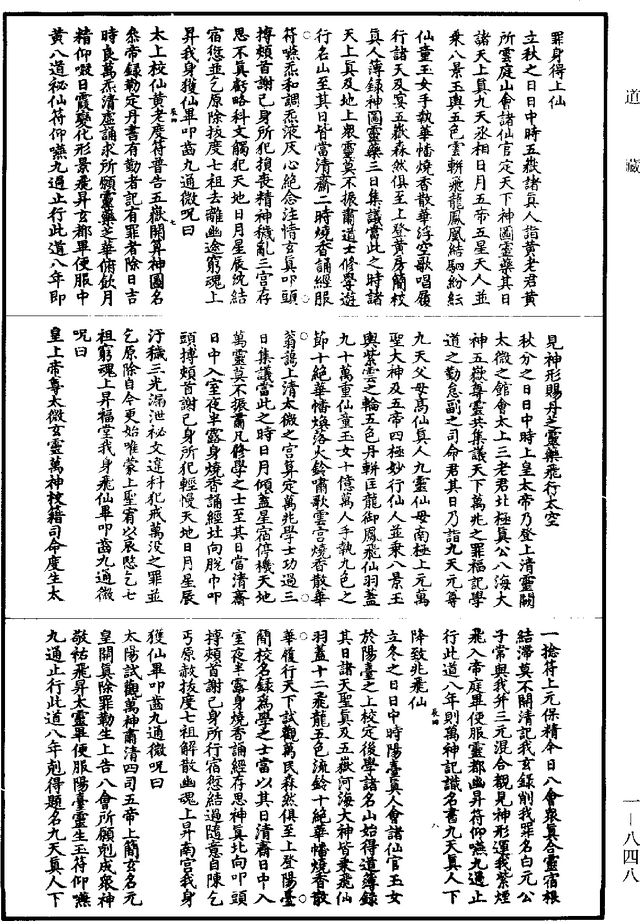 道藏
罪身得上仙
立秋之日日中時五嶽諸真人詣黃老君黃
所雲庭山會諸仙官定天下神圖靈藥其日
諸天上真九天丞相日月五帝五星天人並
乘八景玉輿五色雲軿飛龍鳳凰結駟紛紜
仙童玉女手執華幡燒香散華浮空歌唱履
行諸天及宴五嶽森然俱至上登黃房簡校
真人簿錄神圖靈藥三日集議當此之時諸
天上真及地上眾靈莫不振肅道士修學遊
行名山至其日皆當清齋二時燒香誦經服
符嚥炁和調炁液灰心絶念注情玄真叩頭
搏頰首謝己身所犯損喪精神穢亂三宮存
思不真虧略科文觸犯天地日月星辰纨結
宿愆並乞原除拔度七祖去離幽途窮魂上
昇我身獲仙畢叩齒九通微呪曰
太上校仙黃老度符普告五嶽開算神圖名
叅帝録勒定丹書有勤者記有罪者除日吉
時良萬炁清虛誦求所願靈藥芝華俯飲月
精仰啜日霞變化形景飛昇玄都畢便服中
黃八道祕仙符仰嚥九過止行此道八年即
見神形賜丹芝靈藥飛行太空
秋分之日日中時上皇太帝乃登上清靈闕
太微之館會太上三老君北極真公八海大
神五嶽尊靈共集議天下萬兆之罪福記學
道之勤怠副之司命君其日乃詣九天元尊
九天父母高仙真人九靈仙母南極上元萬
聖大神及五帝四極妙行仙人並乘八景玉
輿紫雲之輪五色丹軿匡龍御鳳飛仙羽蓋
九十萬重仙童玉女十億萬人手執九色之
節十絶華幡煥落火鈴嘯歌雲宮燒香散華
蓊藹上清太微之宮算定萬兆學士功過三
日集議當此之時日月傾蓋星宿停機天地
萬靈莫不振肅凡修學之士至其日當清齋
日中入室夜半露身燒香誦經北向脫巾叩
頭搏頰首謝己身所犯輕慢天地日月星辰
汙穢三光漏泄祕文違科犯戒萬没之罪並
乞原除自今更始唯蒙上聖宥以哀愍乞七
祖窮魂上昇福堂我身飛仙畢叩齒九通微
呪曰
皇上帝尊太微玄靈萬神校籍司命度生太
一捻符上元保精今日八會眾真合靈宿根
結滯莫不開清記我玄録削我罪名白元公
子常與我并三元混合觀見神形運我紫煙
飛入帝庭畢便服靈都幽昇符仰嚥九過止
行此道八年則萬神記識名書九天真人下
降致兆飛仙
立冬之日日中時陽臺真人會諸仙官玉女
於陽臺之上校定後學諸名山始得道簿録
其日諸天聖真及五嶽河海大神皆乘飛仙
羽蓋十二飛龍五色流鈴十絶華幡燒香散
華履行天下試觀萬民森然俱至上登陽臺
簡校名録為學之士當以其日清齋日中入
室夜半露身燒香誦經存思神真北向叩頭
搏頰首謝己身所行宿愆結過隨意自陳乞
丐原赦拔度七祖解散幽魂上昇南宮我身
獲仙畢叩齒九通微呪曰
太陽試觀萬神肅清四司五帝上簡玄名元
皇開真除罪勒生上告八會所願剋成眾神
敬祐飛昇太靈畢便服陽臺靈生玉符仰嚥
九通止行此道八年剋得題名九天真人下
一－八四八